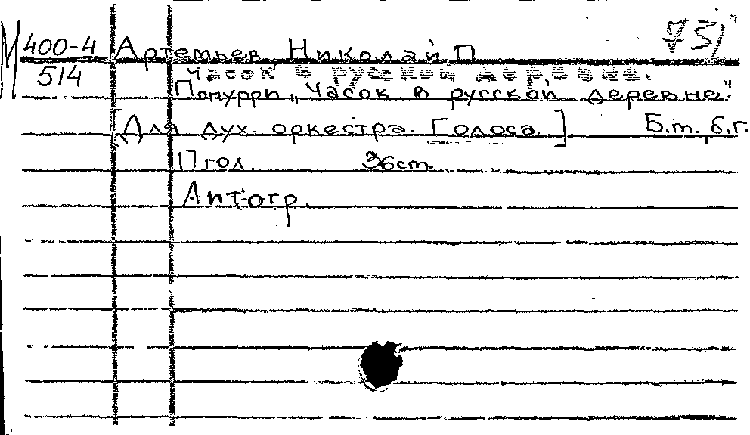 М 400-4 Артемьев, Николай П 751
514 Часок в русской деревне.
Попурри „Часок в русской деревне"
[Для дух. оркестра. Голоса.] Б.т., б.г.
17 гол. 36 ст.
Автогр.